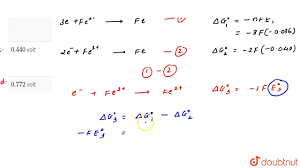 3e + Fe³⁺ → Fe —① ΔG₁° = -nFE₁
= -3F(-0.036)
0.440 volt
2e⁻ + Fe²⁺ → Fe —② ΔG₂° = -2F(-0.040)
① - ②
0.772 volt
e⁻ + Fe³⁺ → Fe²⁺ ΔG₃° = -1F E₃°
ΔG₃° = ΔG₁° - ΔG₂°
-FE₃° =
doubtnut